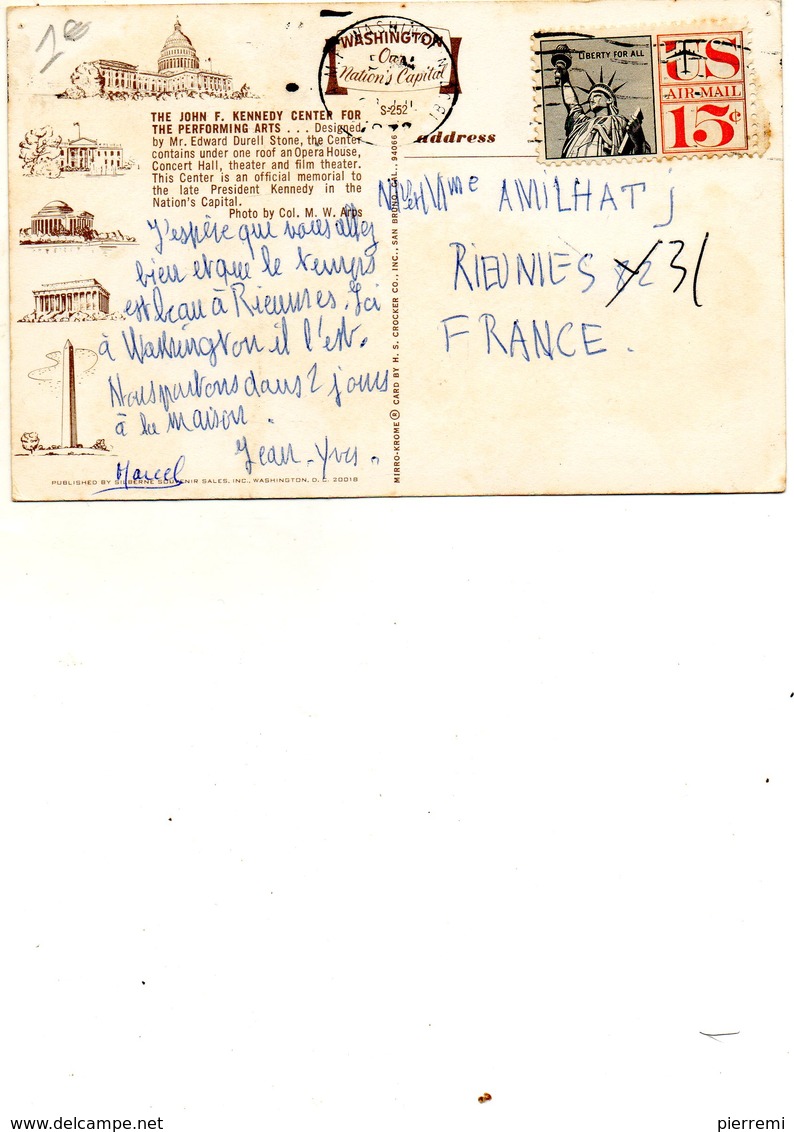 10
WASHINGTON
Our
Nation's Capital
S-252
LIBERTY FOR ALL
US
AIR-MAIL
15¢
THE JOHN F. KENNEDY CENTER FOR
THE PERFORMING ARTS . . . Designed
by Mr. Edward Durell Stone, the Center
contains under one roof an Opera House,
Concert Hall, theater and film theater.
This Center is an official memorial to
the late President Kennedy in the
Nation's Capital.
Photo by Col. M. W. Arps
address
J'espère que vous allez
bien et que le temps
est beau à Rieumes. Ici
à Washington il l'est.
Nous partons dans 2 jours
à la maison.
Jean-Yves.
Marcel
PUBLISHED BY SILBERNE SOUVENIR SALES, INC., WASHINGTON, D. C. 20018
MIRRO-KROME ® CARD BY H. S. CROCKER CO., INC., SAN BRUNO, CAL. 94066
et Mme AMILHAT J
RIEUMES 31
FRANCE.
delcampe.net
pierremi